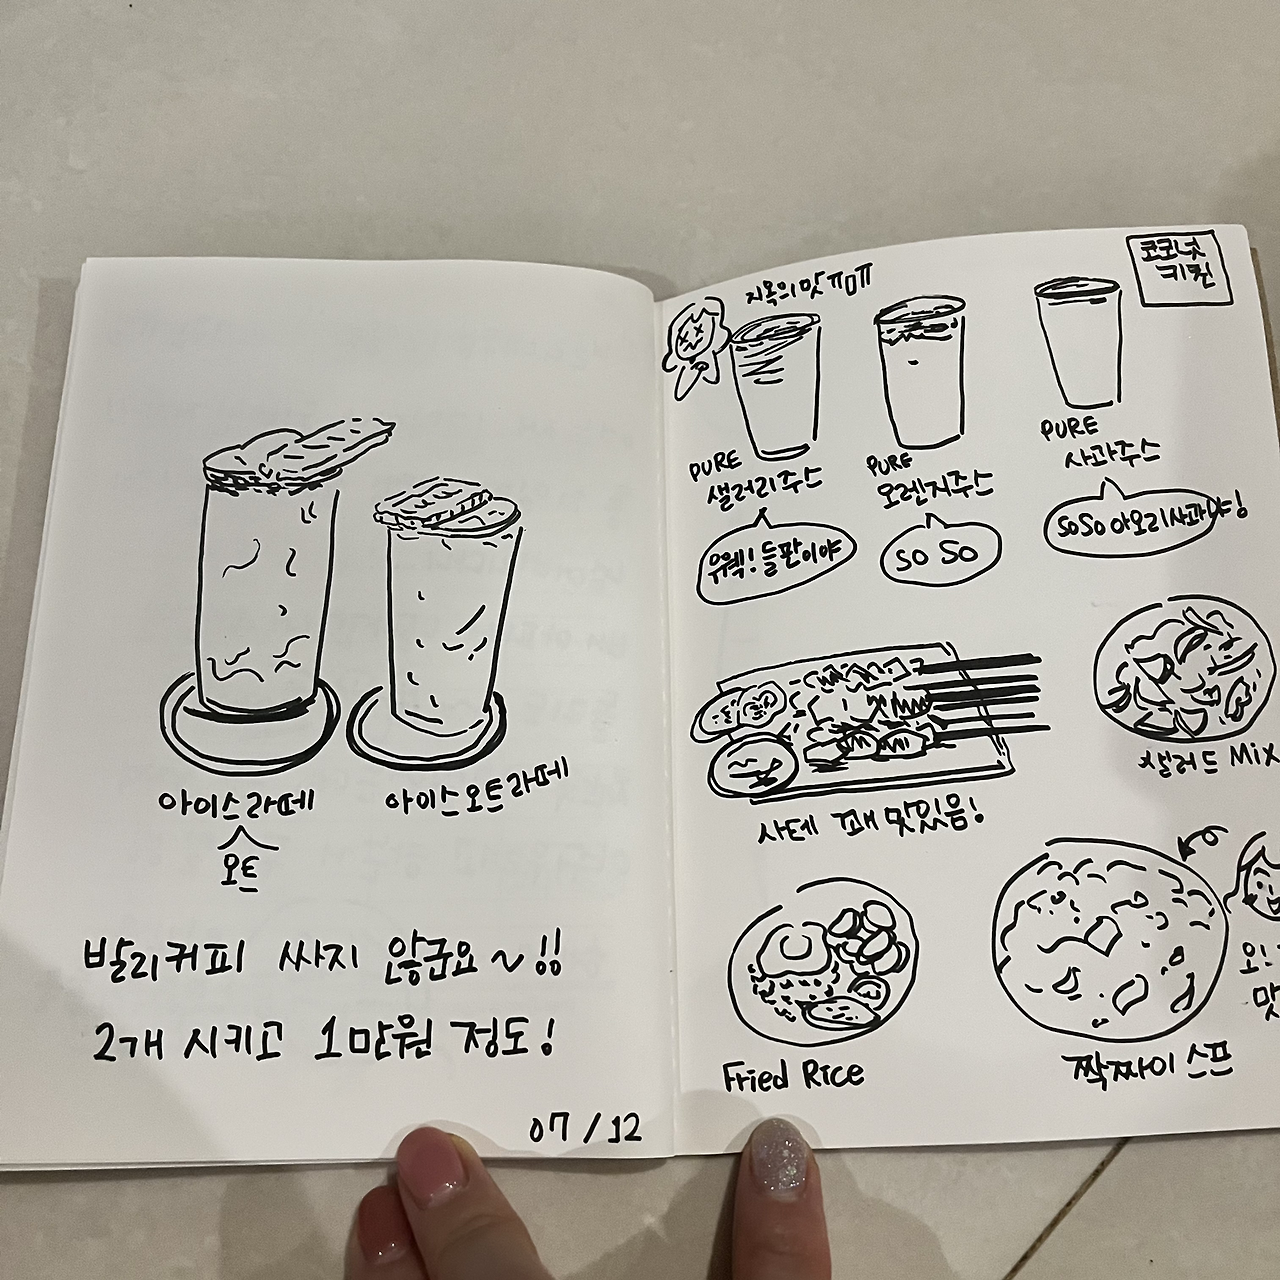 아이스라떼
오트
아이스오트라떼
발리커피 싸지 않군요~!!
2개 시키고 1만원 정도!
07/12
코코넛
키친
지옥의 맛 ㅠㅁㅠ
PURE
샐러리주스
우웩! 들판이야
PURE
오렌지주스
SO SO
PURE
사과주스
SOSO 아오리사과야!
사테 꽤 맛있음!
샐러드 Mix
Fried Rice
짝짜이 스프